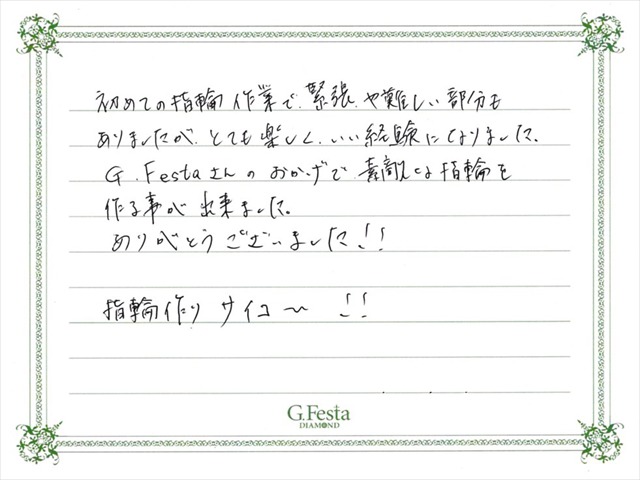 初めての指輪作業で、緊張や難しい部分も
ありましたが、とても楽しく、いい経験になりました。
G.Festaさんのおかげで、素敵な指輪を
作る事が出来ました。
ありがとうございました!!
指輪作り サイコ〜 !!
G.Festa
DIAMOND